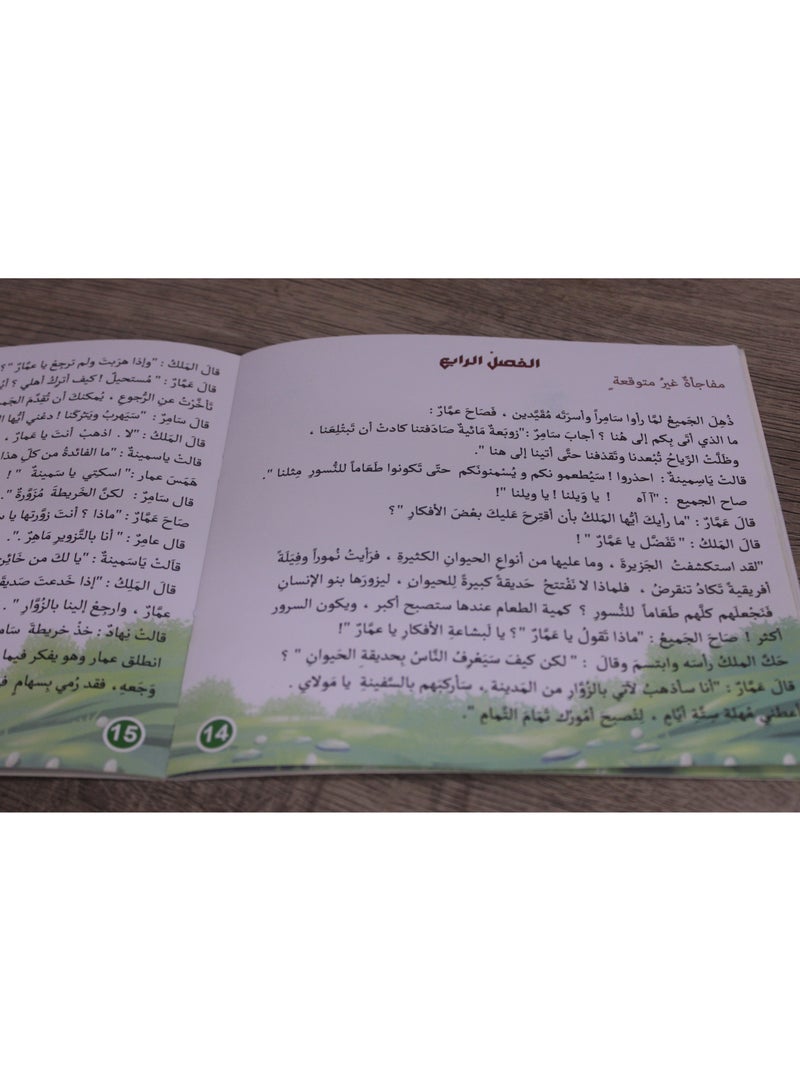 الفصل الرابع
مفاجأةٌ غيرُ متوقعةٍ
ذُهِلَ الجَميعُ لمَّا رأوا سَامِراً وأسرَته مُقَيَّدين ، فَصَاحَ عمَّارُ :
ما الذي أتَى بِكم إلى هُنا ؟ أجابَ سَامِرُ :"زوبَعةٌ مَائيةٌ صَادَفتنا كادتْ أن تَبتْلِعَنا ،
وظلَّتْ الرِّياحُ تُبْعدنا وتَقذفنا حتَّى أتينا إلى هنا ".
قالتْ يَاسِمينةُ : احذروا ! سَيُطعمو نكم و يُسْمنونَكم حتَّى تَكونوا طَعَاماً للنُّسورِ مِثلنا ".
صاح الجميع : "آ آه ! يا وَيلنا ! يا ويلنا "!
قالَ عَمَّارُ : "ما رأيكَ أيُّها المَلكُ بأن أقتِرحَ عَليكَ بعضَ الأفكارِ "؟
قَال المَلكُ : " تَفَضَّل يا عَمَّارُ "!
"لقد استكشفتُ الجَزيرةَ ، وما عليها من أنواعِ الحيوانِ الكثيرةِ ، فرَأيتُ نُموراً وفِيَلَةً
أفريقيةً تَكادُ تنقرضُ ، فلماذا لا نُفْتتحُ حَديقةً كبيرةً لِلحيوانِ ، ليزورَها بنو الإنسانِ
فنَجْعلَهم كلَّهم طَعَاماً للنُّسورِ ؟ كمية الطعام عندها ستصبح أكبر ، ويكون السرور
أكثر ! صَاحَ الجَميعُ : "ماذا تَقولُ يا عَمَّارُ "؟ يا لَبشاعةِ الأفكارِ يا عمَّارُ "!
حَكَّ الملكُ رأسَه وابتسمَ وقالَ : " لكن كيفَ سَيَعْرِفُ النَّاسُ بِحديقةِ الحَيوانِ " ؟
قالَ عَمَّارُ : "أنا سأذهبُ لآتي بالزُّوَّارِ من المَدينةِ ، سَأركبَهم بالسَّفينةِ يا مَولاي .
أعطني مُهلةَ ستَّةِ أيَّامٍ ، لِتُصبحَ أمُورُك تَمَامَ التَّمامِ ".
14
قالَ المَلكُ : "وإذا هرَبتَ ولم ترجِعْ يا عمَّارُ "؟
قَالَ عَمَّارُ : " مُستحيلٌ ! كيفَ أتركُ أهلي ؟
تَأخَّرْتُ عنِ الرُّجوعِ ، يُمكنكَ أن تُقدِّمَ
قالَ سَامِرُ : "سَيَهربُ ويَتركُنا ! دعْني أيُّها
قالَ المَلكُ : "لا . اذهبْ أنتَ يا عَمارُ ،
قالتْ ياسمينةُ : "ما الفائدةُ من كلِّ هذا
هَمَسَ عمار :" اسكتِي يا سَمينةُ "!
قال سَامِرُ : لكنَّ الخَريطةَ مُزوَّرةٌ ".
صَاحَ عَمَّارُ : "ماذا ؟ أنتَ زوَّرتَها يا
قال عامِرُ : " أنا بالتَّزويرِ مَاهِرٌ .".
قالتْ يَاسَمينةُ : "يا لكَ من خَائِنٍ
قالَ المَلكُ : "إذا خَدعتَ
عَمَّارُ ، وارجعْ إلينا بالزُّوَّارِ " .
قالتْ نِهادُ : خذْ خريطةَ
انطلق عمار وهو يفكر فيما
وَجَعهِ ، فقد رُمي بِسهامٍ
15